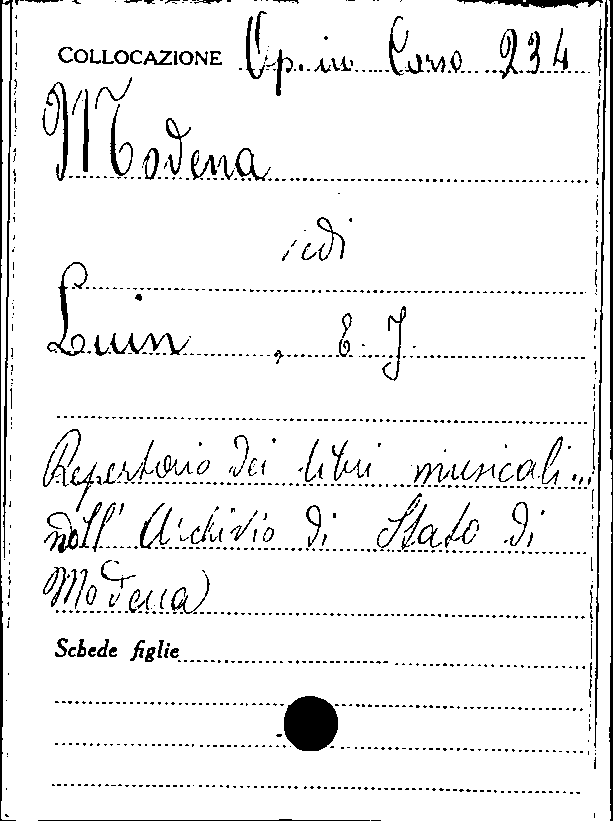 COLLOCAZIONE Op. in Corso 234
Modena
vedi
Luin, E. J.
Repertorio dei libri musicali...
nell' Archivio di Stato di
Modena
Schede figlie